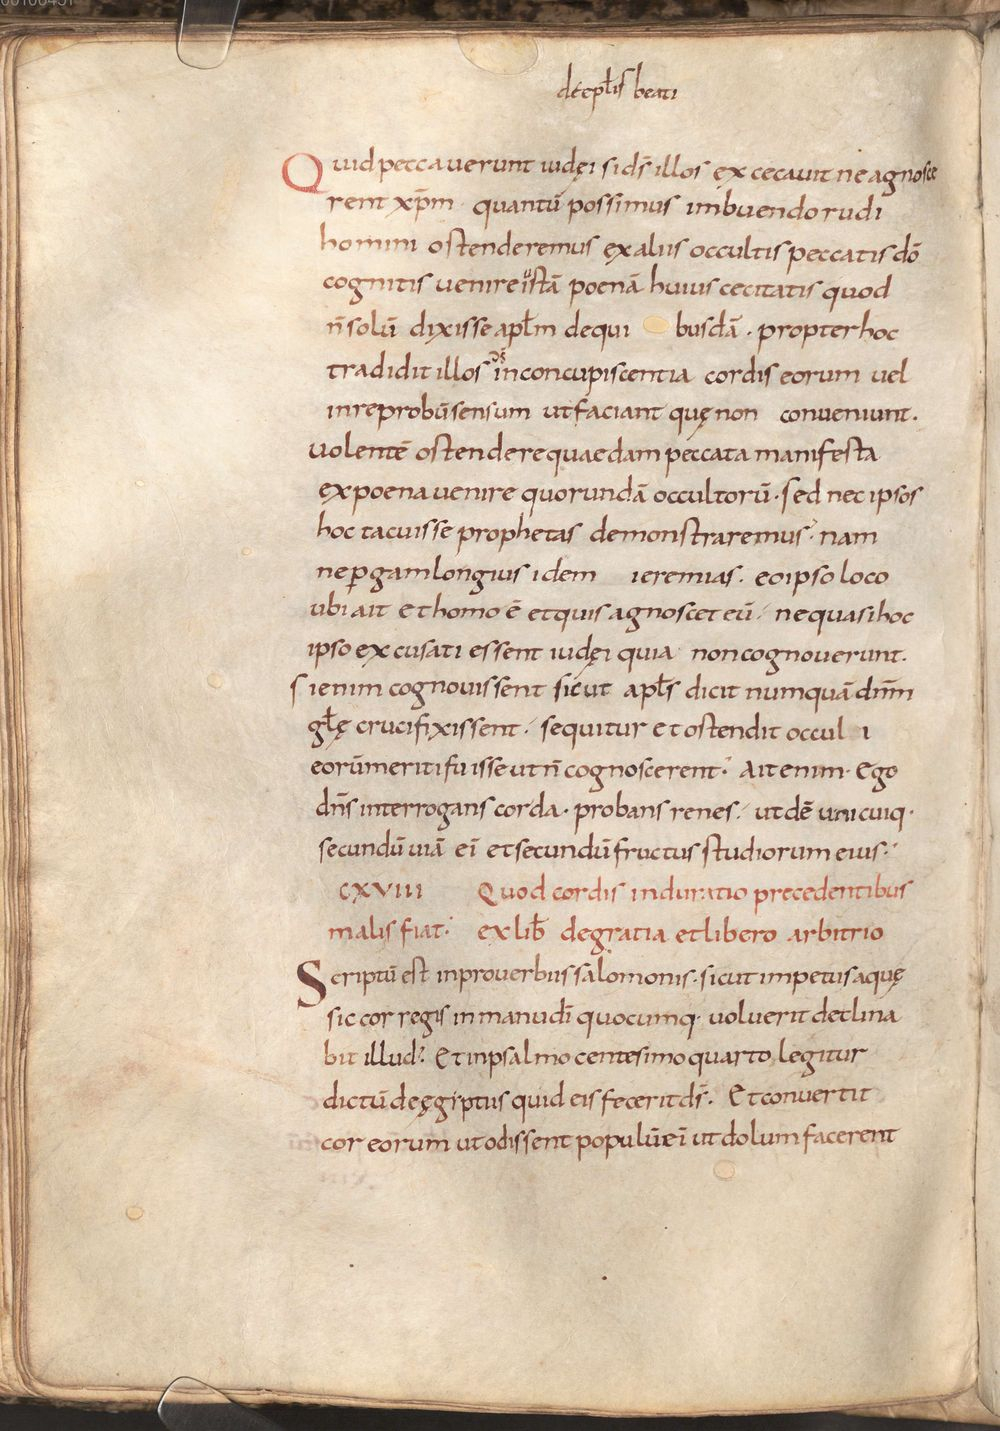 decerpt̄is beati
Quid peccauerunt iudęi si ds̄ illos excecauit ne agnosce
rent xp̄m · quantū possimus imbuendo rudi
homini ostenderemus ex aliis occultis peccatis dō
cognitis uenire ustā poenā huius cecitatis quod
n̄ solū dixisse apl̄m de qui busdā · propter hoc
tradidit illos ds̄ in concupiscentia cordis eorum uel
in reprobū sensum ut faciant quę non conueniunt ·
uolentē ostendere quaedam peccata manifesta
ex poena uenire quorundā occultorū · sed nec ipsos
hoc tacuisse prophetas demonstraremus · nam
ne ꝑgam longius idem ieremias · eo ipso loco
ubi ait et homo ē et quis agnoscet eū · ne quasi hoc
ipso excusati essent iudęi quia non cognouerunt ·
si enim cognouissent sicut apl̄s dicit numquā dnm̄
gl̄ę crucifixissent · sequitur et ostendit occul i
eorū meriti fuisse ut n̄ cognoscerent · Ait enim · Ego
dn̄s interrogans corda · probans renes · ut dē unicuiq·
secundū uiā ei ̄ et secundū fructus studiorum eius ·
CXVIII Quod cordis induratio precedentibus
malis fiat · ex lib̄ de gratia et libero arbitrio
Scriptū est in prouerbiis salomonis · sicut impetus aquę
sic cor regis in manu dī quocumq· uoluerit declina
bit illud · Et in psalmo centesimo quarto legitur
dictū de ęgiptiis quid eis fecerit ds̄ · Et conuertit
cor eorum ut odissent populū ei ̄ ut dolum facerent